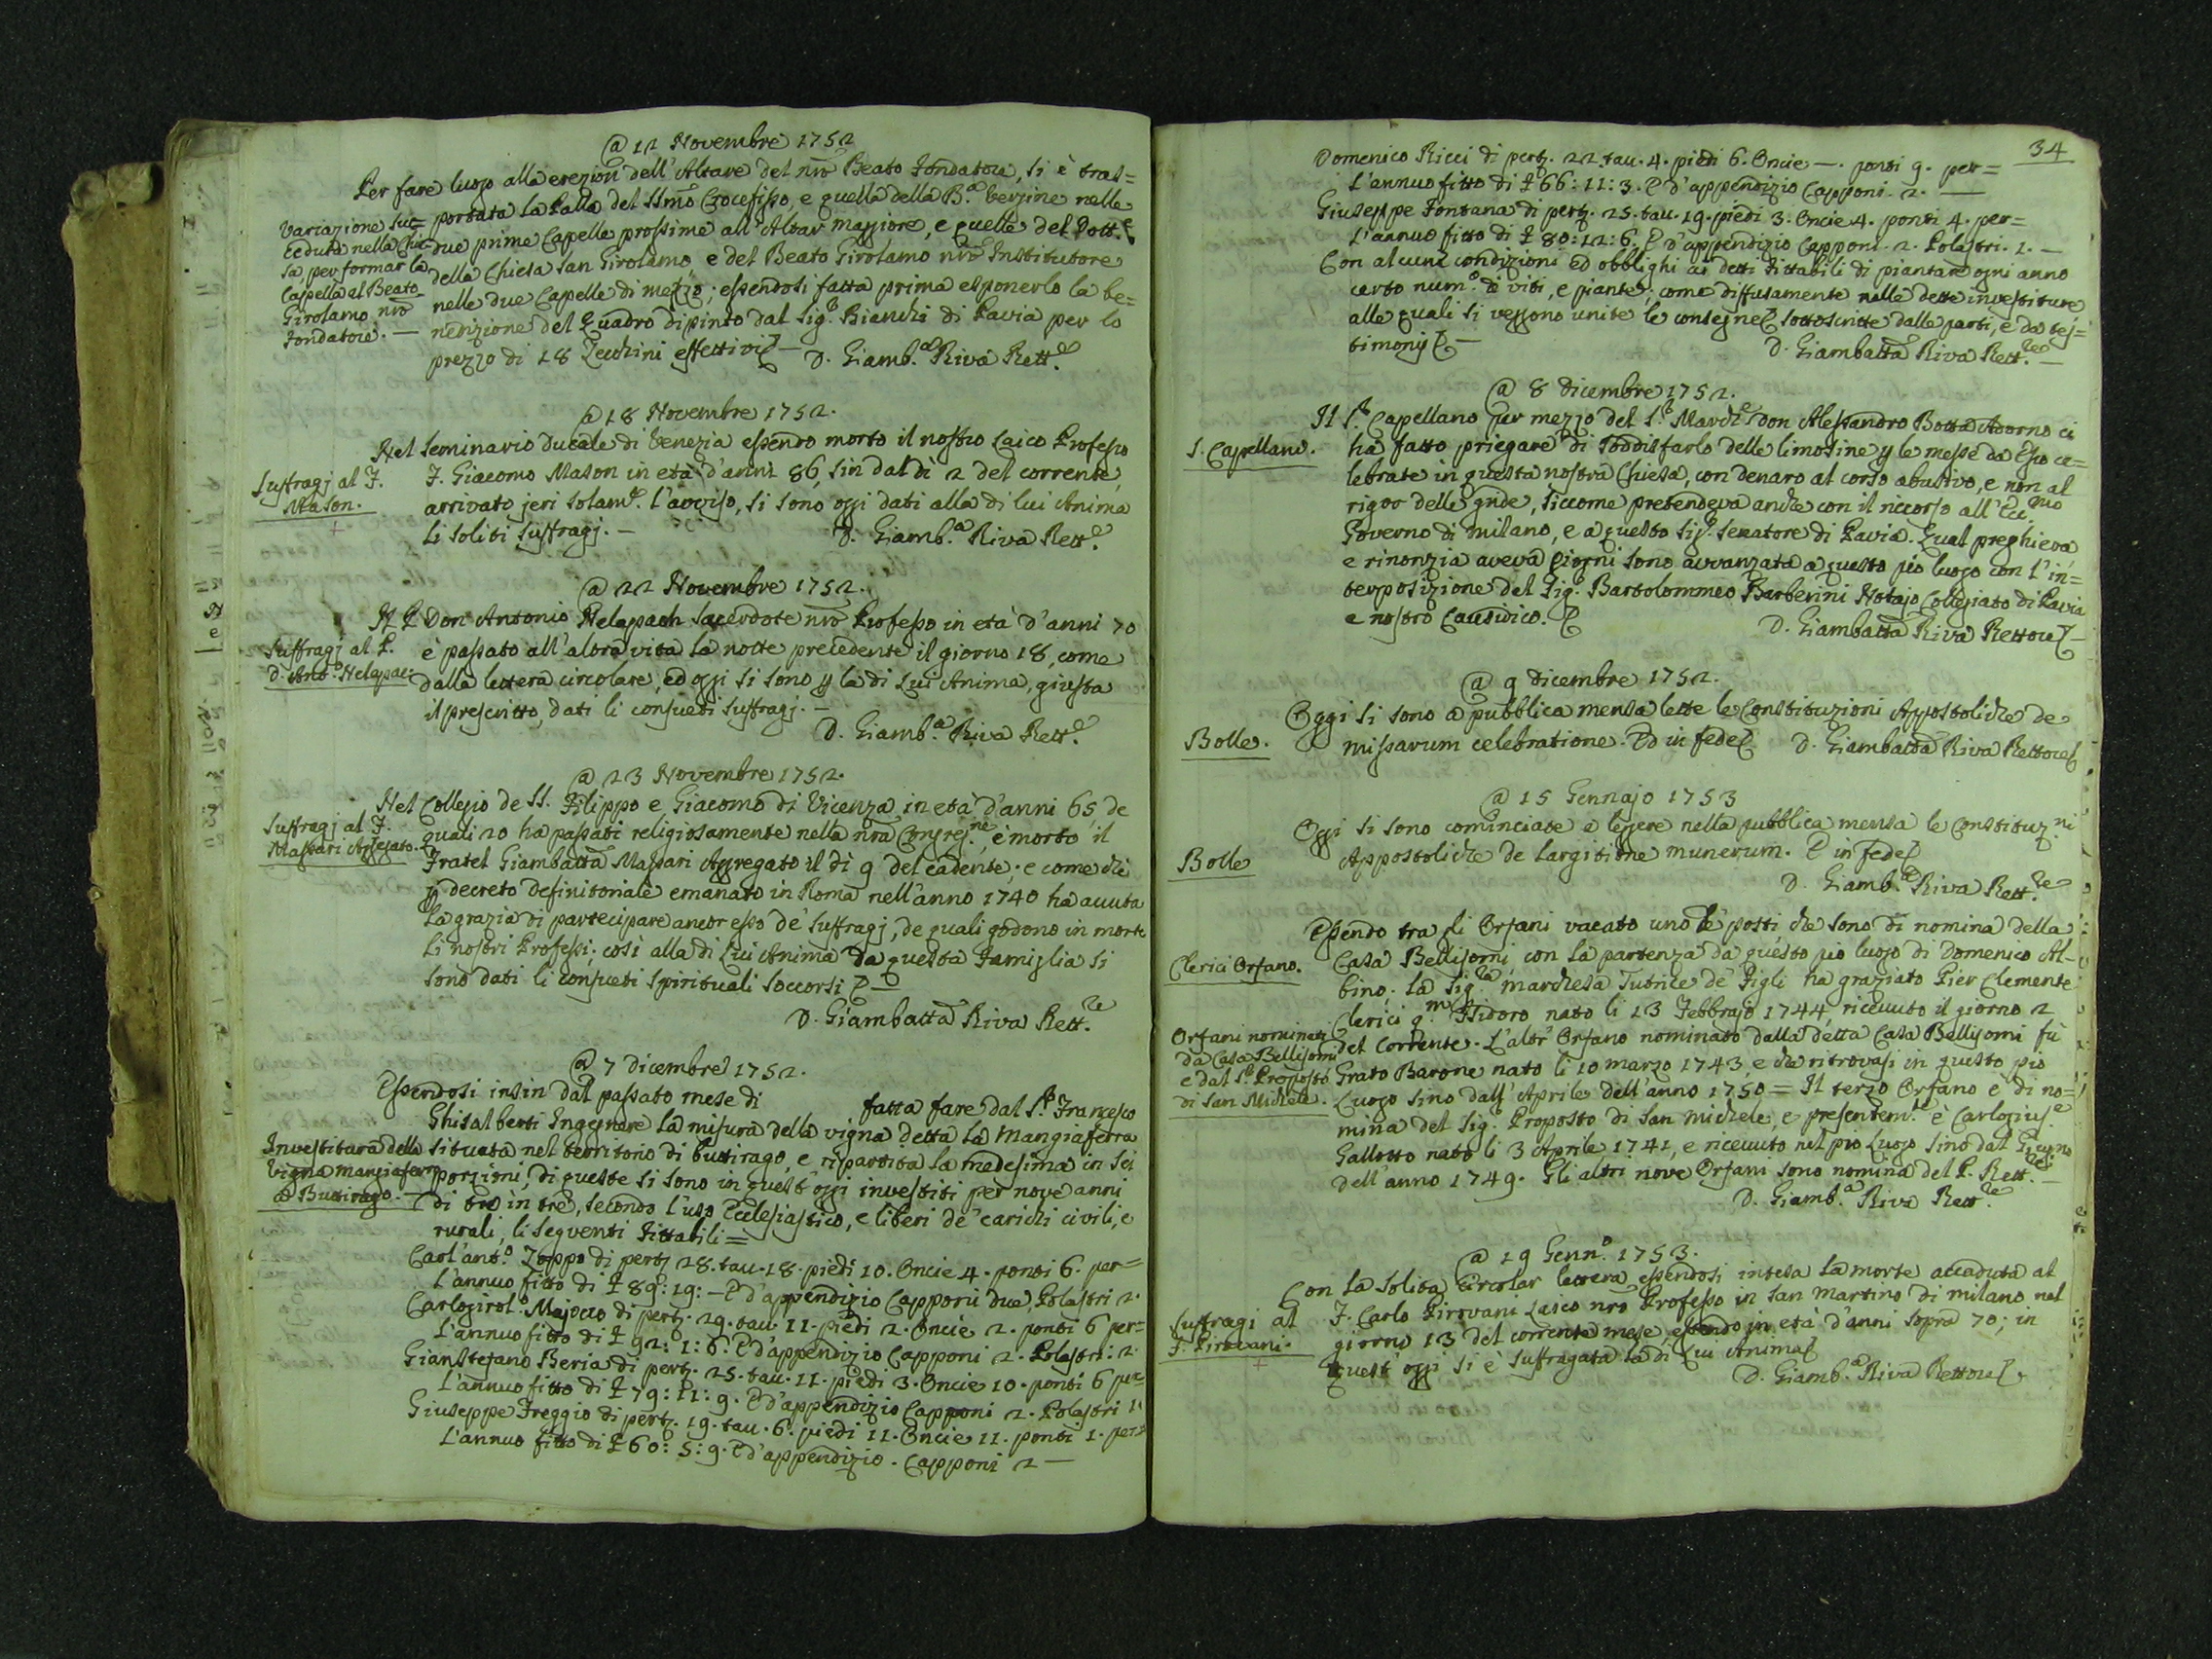 @ 12 Novembre 1752
Per fare luogo alla erezion dell'Altare del nro Beato Fondatore, si è tras=
portata la Palla del SSmo Crocefisso, e quella della B.a Vergine nelle
due prime Capelle prossime all'Altar maggiore, e quelle del Dott.e
della Chiesa San Girolamo, e del Beato Girolamo nro Institutore
nelle due Capelle di mezzo; essendosi fatta prima esponerlo la be=
nedizione del Quadro dipinto dal Sig.r Bianchi di Pavia per lo
prezzo di 18 Zecchini effettivi
D. Giamb.a Riva Rett.e
Variazione suc=
ceduta nella Chie=
sa per formar la
Capella al Beato
Girolamo nro
Fondatore. —
@ 18 Novembre 1752.
Nel Seminario Ducale di Venezia essendo morto il nostro Laico Professo
F. Giacomo Mason in età d'anni 86, sin dal dì 2 del corrente,
arrivato jeri solam.e l'avviso, si sono oggi dati alla di lui Anima
li soliti Suffragj. —
D. Giamb.a Riva Rett.e
Suffragj al F.
Mason.
@ 22 Novembre 1752.
Il P. Don Antonio Nelapach Sacerdote nro Professo in età d'anni 70
è passato all'altra vita la notte precedente il giorno 18, come
dalla lettera circolare, ed oggi si sono p la di Lui Anima, giusta
il prescritto, dati li consueti suffragj. —
D. Giamb.a Riva Rett.e
Suffragj al P.
D. Ant.o Nelapac.
@ 23 Novembre 1752.
Nel Collegio de SS. Filippo e Giacomo di Vicenza in età d'anni 65, de
quali 20 ha passati religiosamente nella nra Congreg.ne, è morto il
Fratel Giambatta Massari Aggregato il dì 9 del cadente; e come che
p decreto definitoriale emanato in Roma nell'anno 1740 ha avuta
la grazia di partecipare ancor esso de' suffragj, de quali godono in morte
li nostri Professi; così alla di Lui Anima da questa Famiglia si
sono dati li consueti spirituali soccorsi
D. Giambatta Riva Rett.re
Suffragj al F.
Massari Aggregato.
@ 7 Dicembre 1752.
Essendosi insin dal passato mese di fatta fare dal S.r Francesco
Ghisalberti Ingegnere la misura della vigna detta la Mangiaferra
situata nel territorio di Buttirago, e ripartita la medesima in sei
porzioni, di queste si sono in quest'oggi investiti per nove anni
di tre in tre, secondo l'uso Ecclesiastico, e liberi de' carichi civili, e
rurali, li seguenti Fittabili =
Carl'ant.o Zoppo di pert. 28. tau. 18. piedi 10. Oncie 4. ponti 6. per=
L'annuo fitto di £ 89: 19: — E d'appendizio Capponi due, Polastri 2.
Carlogirol.o Majocco di pert. 29. tau. 11. piedi 2. Oncie 2. ponti 6 per=
L'annuo fitto di £ 92: 1: 6. E d'appendizio Capponi 2. Polastri: 2.
Gianstefano Beria di pert. 25. tau. 11. piedi 3. Oncie 10. ponti 6 per=
L'annuo fitto di £ 79: 11: 9. E d'appendizio Capponi 2. Polastri 1.
Giuseppe Freggio di pert. 19. tau. 6. piedi 11. Oncie 11. ponti 1. per=
L'annuo fitto di £ 60: 5: 9. E d'appendizio. Capponi 2 —
Investitura della
Vigna Mangiaferra
a Buttirago. —
34
Domenico Ricci di pert. 22. tau. 4. piedi 6. Oncie —. ponti 9. per=
L'annuo fitto di £ 66: 11: 3. E d'appendizio Capponi. 2. —
Giuseppe Fontana di pert. 25. tau. 19. piedi 3. Oncie 4. ponti 4. per=
L'annuo fitto di £ 80: 12: 6. E d'appendizio Capponi. 2. Polastri. 1. —
Con alcune condizioni ed obblighi ai detti Fittabili di piantare ogni anno
certo num.o di viti, e piante; come diffusamente nelle dette investiture
alle quali si veggono unite le consegne sottoscritte dalle parti, e da tes=
timonj —
D. Giambatta Riva Rett.re —
@ 8 Dicembre 1752.
Il S.r Capellano per mezzo del S.r March.e Don Alessandro Botta Adorno ci
ha fatto priegare di soddisfarlo delle limosine p le messe da Esso ce=
lebrate in questa nostra Chiesa, con denaro al corso abusivo, e non al
rigor delle gride, siccome pretendeva anche con il riccorso all'Ecc.mo
Governo di Milano, e a questo Sig.r Senatore di Pavia. Qual preghiera
e rinonzia aveva giorni sono avvanzata a questo pio luogo con l'in=
terposizione del Sig. Bartolommeo Barberini Notajo Collegiato di Pavia
e nostro Causidico.
D. Giambatta Riva Rettore —
S. Capellano.
@ 9 Dicembre 1752.
Oggi si sono a pubblica mensa lette le Constituzioni Appostoliche de
missarum celebratione. Ed in fede D. Giambatta Riva Rettore
Bolle.
@ 15 Gennajo 1753
Oggi si sono cominciate a leggere nella pubblica mensa le Constituz.ni
Appostoliche de largitione munerum. E in fede
D. Giamb.a Riva Rett.re
Bolle
Essendo tra gli Orfani vacato uno de' posti che sono di nomina della
Casa Bellisomi con la partenza da questo pio luogo di Domenico Al=
bino; la Sig.ra Marchesa Tutrice de' Figli ha graziato Pier Clemente
Clerici q.m Isidoro nato li 23 Febbrajo 1744, ricevuto il giorno 2
del Corrente. L'altr'Orfano nominato dalla detta Casa Bellisomi fù
Grato Barone nato li 10 marzo 1743, e che ritrovasi in questo pio
Luogo sino dall'Aprile dell'anno 1750 = Il terzo Orfano è di no=
mina del Sig. Proposto di San Michele, e presentem.te è Carlogius.e
Gallotto nato li 3 Aprile 1741, e ricevuto nel pio Luogo sino dal Giugno
dell'anno 1749. Gli altri nove Orfani sono nomina del P. Rett.re —
D. Giamb.a Riva Rett.re
Clerici Orfano.
Orfani nominati
da Casa Bellisomi
e dal S.r Proposto
di San Michele.
@ 19 Genn.o 1753.
Con la solita Circolar lettera essendosi intesa la morte accaduta al
F. Carlo Pirovani Laico nro Professo in San Martino di Milano nel
giorno 13 del corrente mese, essendo in età d'anni sopra 70; in
quest'oggi si è suffragata la di Lui Anima
D. Giamb.a Riva Rettore.
Suffragi al
F. Pirovani.